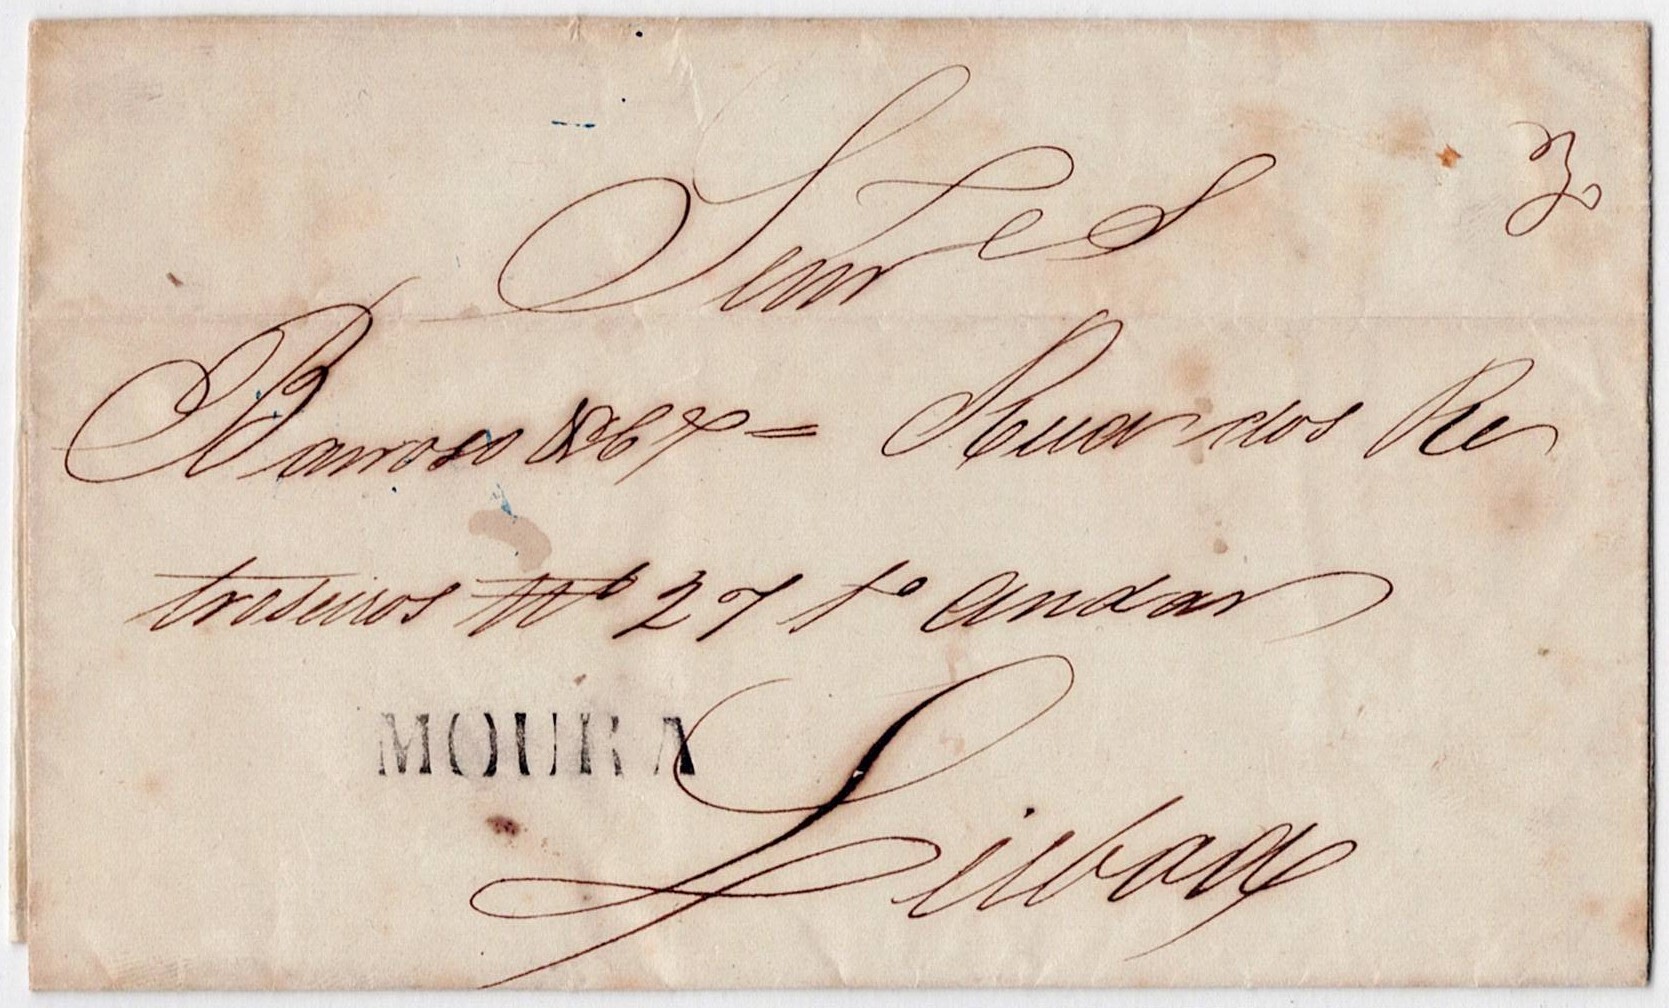 Senr es
Barroso & Cª = Rua dos Re
troseiros Nº 27 1º andar
MOURA
Lisboa